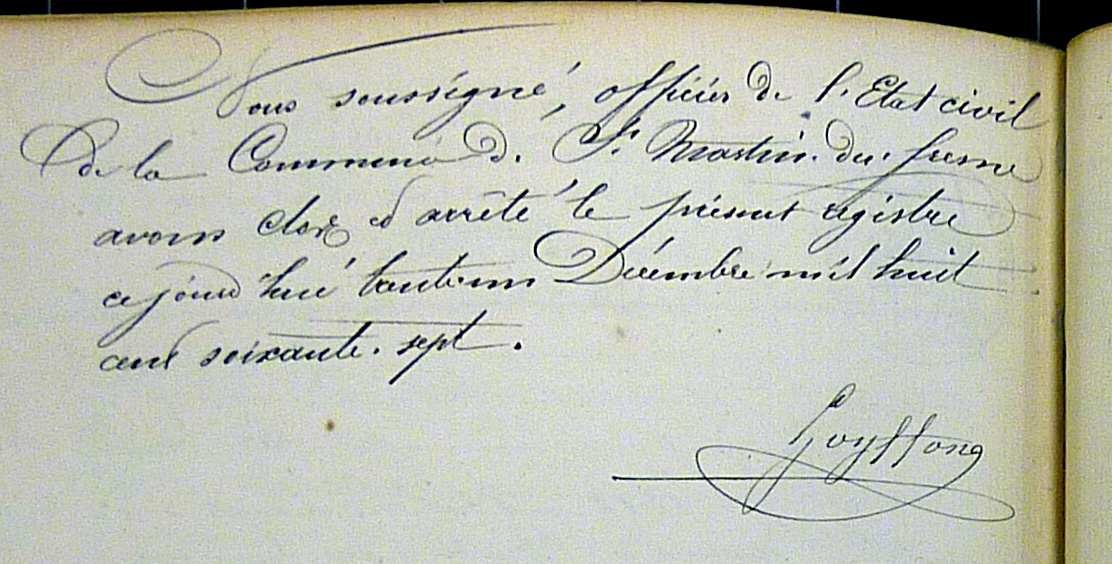 Nous soussigné, officier de l'Etat civil
de la Commune d. St Martin. du. fresne
avons clos et arrêté le présent registre
ce jourd'hui trente un Décembre mil huit
cent soixante. sept.
Goyffong